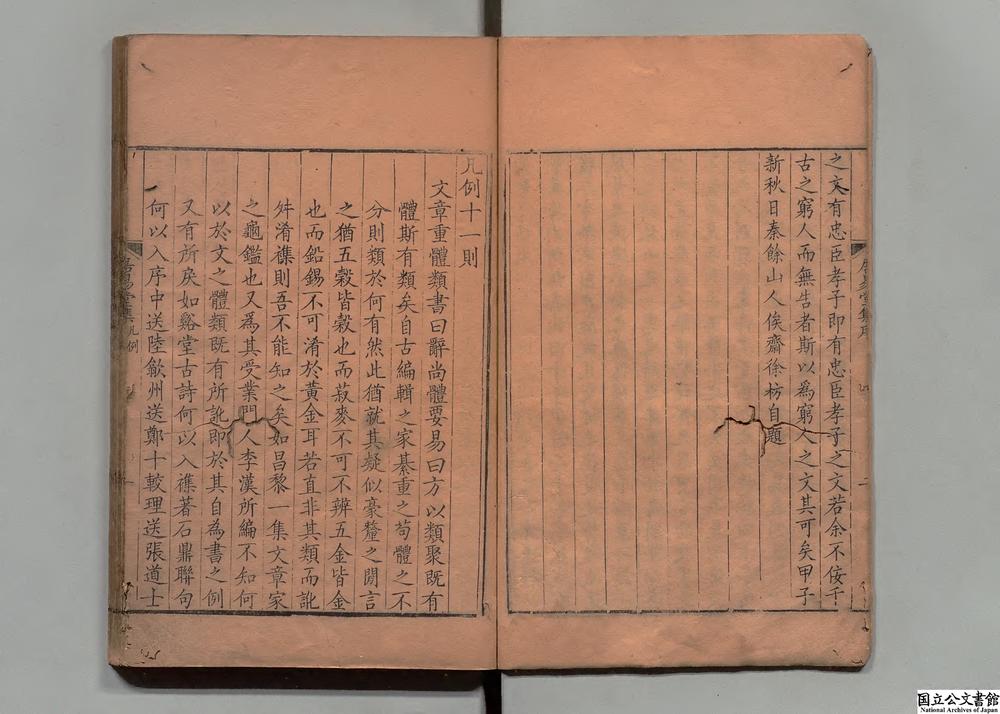 之文有忠臣孝子即有忠臣孝子之文若余不佞千
古之窮人而無告者斯以爲窮人之文其可矣甲子
新秋日秦餘山人俟齋徐枋自題
凡例十一則
文章重體類書曰辭尚體要易曰方以類聚既有
體斯有類矣自古編輯之家綦重之苟體之不
分則類於何有然此猶就其疑似豪釐之閒言
之猶五穀皆穀也而菽麥不可不辨五金皆金
也而鉛錫不可淆於黃金耳若直非其類而訛
舛淆襍則吾不能知之矣如昌黎一集文章家
之龜鑑也又爲其受業門人李漢所編不知何
以於文之體類既有所訛即於其自為書之例
又有所戾如谿堂古詩何以入襍著石鼎聯句
何以入序中送陸歙州送鄭十較理送張道士
居易堂集 凡例
国立公文書館
National Archives of Japan